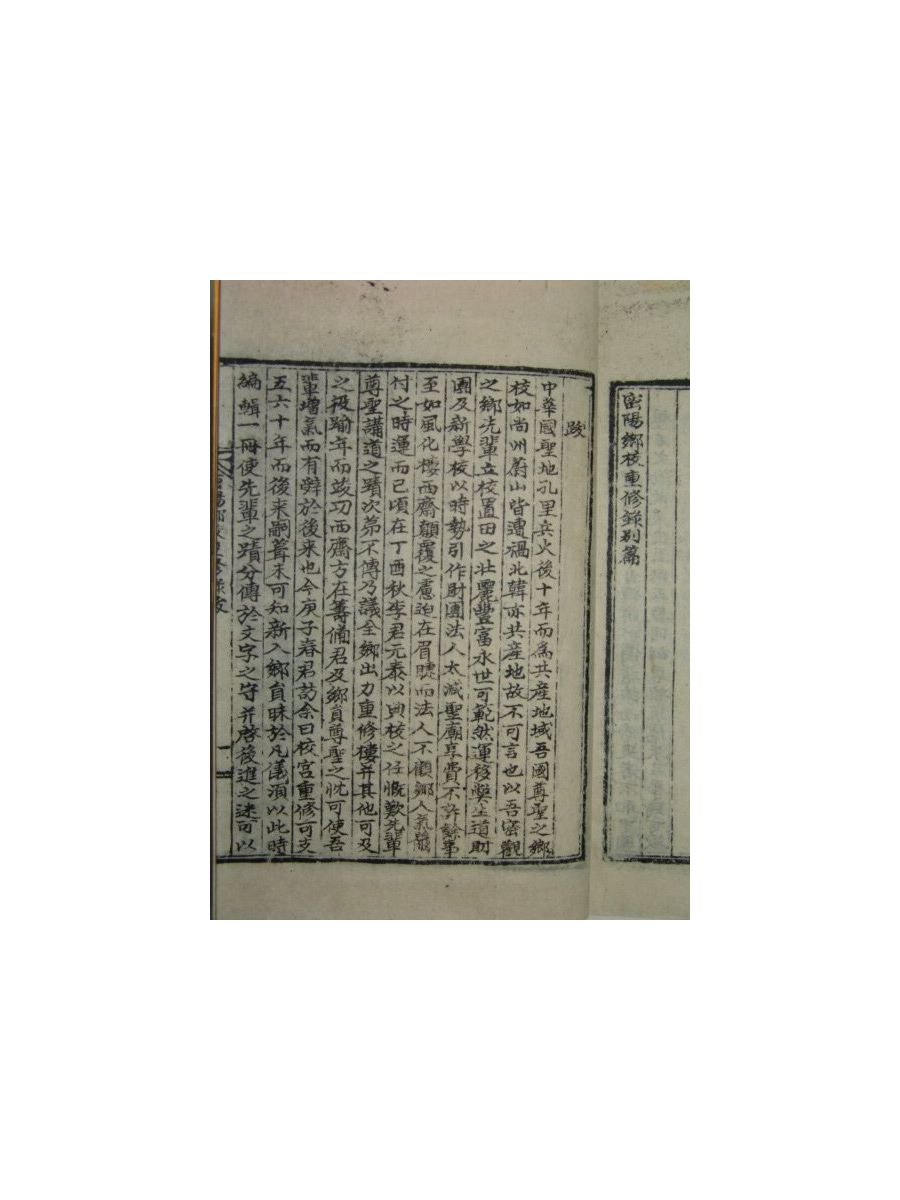 密陽鄉校重修錄別篇
跋
中華國聖地孔里兵火後十年而爲共産地域吾國尊聖之鄉
校如尚州蔚山皆遭禍北韓亦共産地故不可言也以吾密觀
之鄉先輩立校置田之壯麗豐富永世可範然運移奬生道財
團及新學校以時勢引作財團法人太减聖廟享費不許餘事
至如風化樓西齋顚覆之慮迫在眉睫而法人不顧鄉人氣
付之時運而已頃在丁酉秋李君元泰以典校之任慨歎先輩
尊聖講道之蹟次苐不傳乃議全鄉出力重修樓并其他可及
之役踰年而竣功西齋方在籌備君及鄉員尊聖之忱可使吾
輩增氣而有辤於後来也今庚子春君訪余曰校宮重修可支
五六十年而後来嗣葺未可知新入鄉員昧於凡儀湏以此時
編輯一冊使先輩之蹟分傳於文字之守并啓後進之迷可以